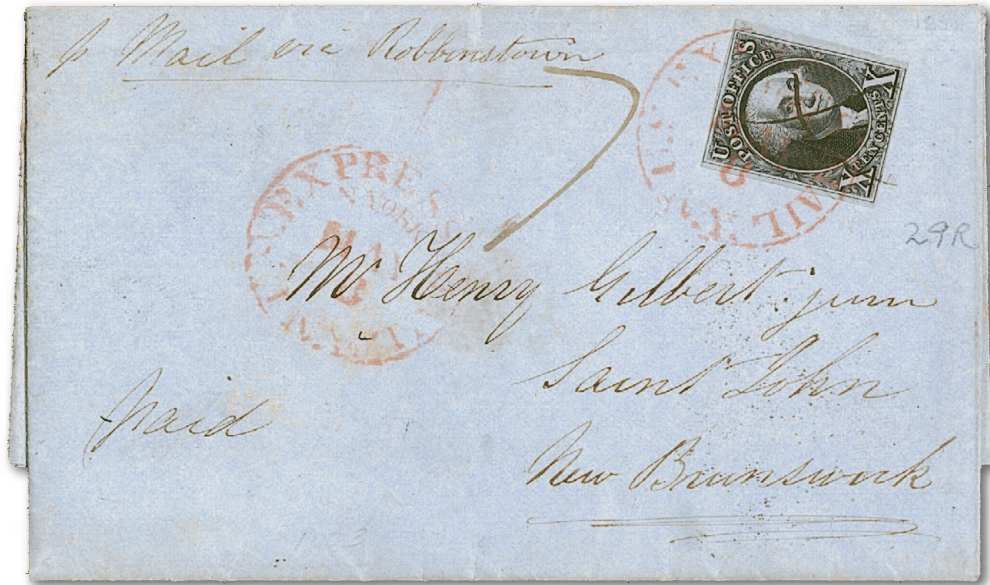 p Mail via Robbinstown
7
U S
POST OFFICE
X TEN CENTS X
EXPRESS MAIL
N. YORK
MAY
MAIL
29R
Mr Henry Gilbert junr
Saint John
New Brunswick
Paid